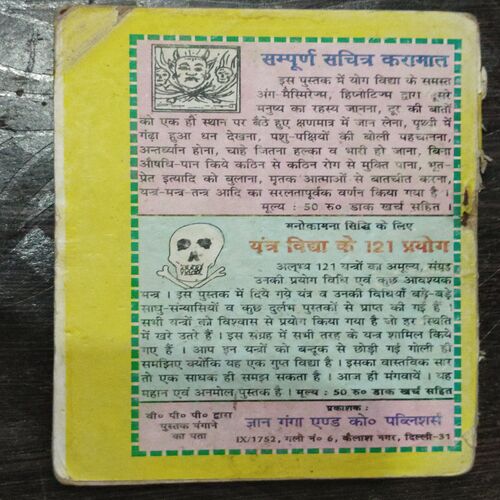 सम्पूर्ण सचित्र करामात
इस पुस्तक में योग विद्या के समस्त
अंग-मैस्मिरेज्म, हिप्नोटिज्म द्वारा दूसरे
मनुष्य का रहस्य जानना, दूर की बातों
को एक ही स्थान पर बैठे हुए क्षणमात्र में जान लेना, पृथ्वी में
गढ़ा हुआ धन देखना, पशु-पक्षियों की बोली पहचानना,
अन्तर्ध्यान होना, चाहे जितना हल्का व भारी हो जाना, बिना
औषधि-पान किये कठिन से कठिन रोग से मुक्ति पाना, भूत-
प्रेत इत्यादि को बुलाना, मृतक आत्माओं से बातचीत करना,
यन्त्र-मन्त्र-तन्त्र आदि का सरलतापूर्वक वर्णन किया गया है ।
मूल्य : 50 रु० डाक खर्च सहित ।
मनोकामना सिद्धि के लिए
यंत्र विद्या के 121 प्रयोग
अलभ्य 121 यन्त्रों का अमूल्य, संग्रह
उनकी प्रयोग विधि एवं कुछ आवश्यक
मन्त्र । इस पुस्तक में दिये गये यंत्र व उनकी विधियाँ बड़े-बड़े
साधु-सन्यासियों व कुछ दुर्लभ पुस्तकों से प्राप्त की गई हैं ।
सभी यंत्रों को विश्वास से प्रयोग किया गया है जो हर स्थिति
में खरे उतरे हैं । इस संग्रह में सभी तरह के यन्त्र शामिल किये
गए हैं । आप इन यन्त्रों को बन्दूक से छोड़ी गई गोली ही
समझिए क्योंकि यह एक गुप्त विद्या है । इसका वास्तविक सार
तो एक साधक ही समझ सकता है । आज ही मंगवायें । यह
महान एवं अनमोल पुस्तक है । मूल्य : 50 रु० डाक खर्च सहित ।
वी० पी० पी० द्वारा
पुस्तक मंगाने
का पता
प्रकाशक :
ज्ञान गंगा एण्ड को० पब्लिशर्स
IX/1752, गली नं० 6, कैलाश नगर, दिल्ली-31